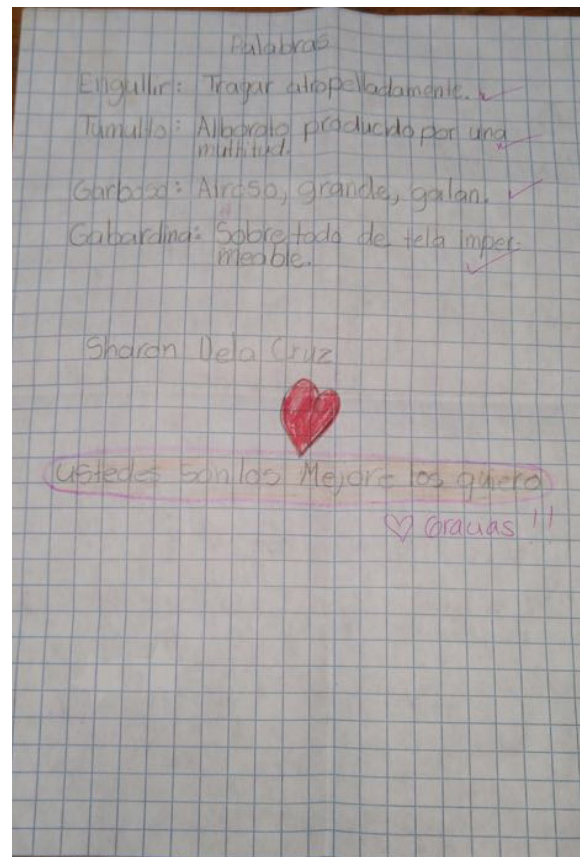 Palabras
Engullir: Tragar atropelladamente.
Tumulto: Alboroto producido por una
multitud.
Garboso: Airoso, grande, galan.
Gabardina: Sobre todo de tela imper-
meable.
Sharon Dela Cruz
ustedes son los Mejore los quiero
Gracias !!